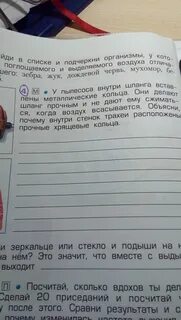 йди в списке и подчеркни организмы, у кото
поглощаемого и выделяемого воздуха отлич
щего: зебра, жук, дождевой червь, мухомор, бе
4 М • У пылесоса внутри шланга встав
лены металлические кольца. Они делают
шланг прочным и не дают ему сжимать-
ся, когда воздух всасывается. Объясни,
почему внутри стенок трахеи расположены
прочные хрящевые кольца.
и зеркальце или стекло и подыши на н
на нём? Это значит, что вместе с выды
выходит
П • Посчитай, сколько вдохов ты дел
Сделай 20 приседаний и посчитай
у после этого. Сравни результаты и с
почему изменилась частота